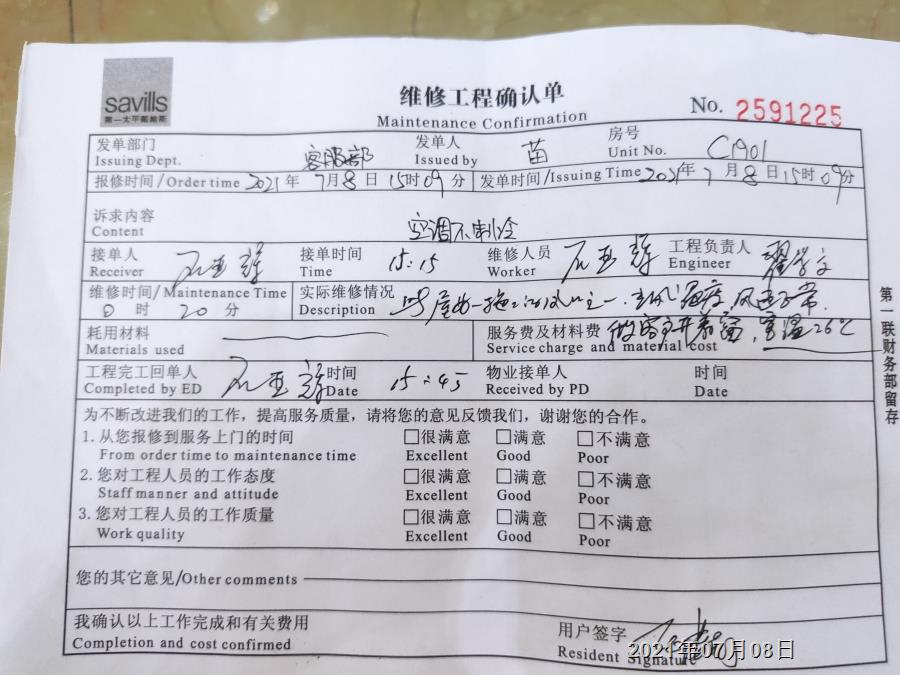 savills
第一太平戴維斯
维修工程确认单
Maintenance Confirmation
No. 2591225
发单部门 客服部 发单人 苗 房号 C1901
Issuing Dept. Issued by Unit No.
报修时间/Order time 2021年7月8日15时09分 发单时间/Issuing Time 2021年7月8日15时09分
诉求内容 空调不制冷
Content
接单人 接单时间 15:15 维修人员 工程负责人
Receiver Time Worker Engineer
维修时间/Maintenance Time 实际维修情况
0时20分 Description
耗用材料 服务费及材料费 室温26℃
Materials used Service charge and material cost
工程完工回单人 时间 15:45 物业接单人 时间
Completed by ED Date Received by PD Date
为不断改进我们的工作，提高服务质量，请将您的意见反馈我们，谢谢您的合作。
1.从您报修到服务上门的时间 □很满意 □满意 □不满意
From order time to maintenance time Excellent Good Poor
2.您对工程人员的工作态度 □很满意 □满意 □不满意
Staff manner and attitude Excellent Good Poor
3.您对工程人员的工作质量 □很满意 □满意 □不满意
Work quality Excellent Good Poor
您的其它意见/Other comments
我确认以上工作完成和有关费用 用户签字
Completion and cost confirmed Resident Signature
第一联财务部留存
2021年07月08日